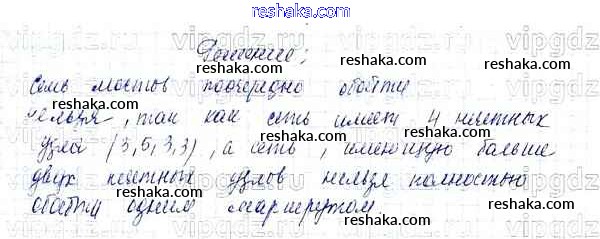 reshaka.com
Решение:
Семь мостов поочередно обойти
нельзя, так как сеть имеет 4 нечетных
узла (3,5,3,3), а сеть, имеющую больше
двух нечетных узлов нельзя полностью
обойти одним маршрутом.
reshaka.com
reshaka.com
reshaka.com
reshaka.com
reshaka.com
reshaka.com